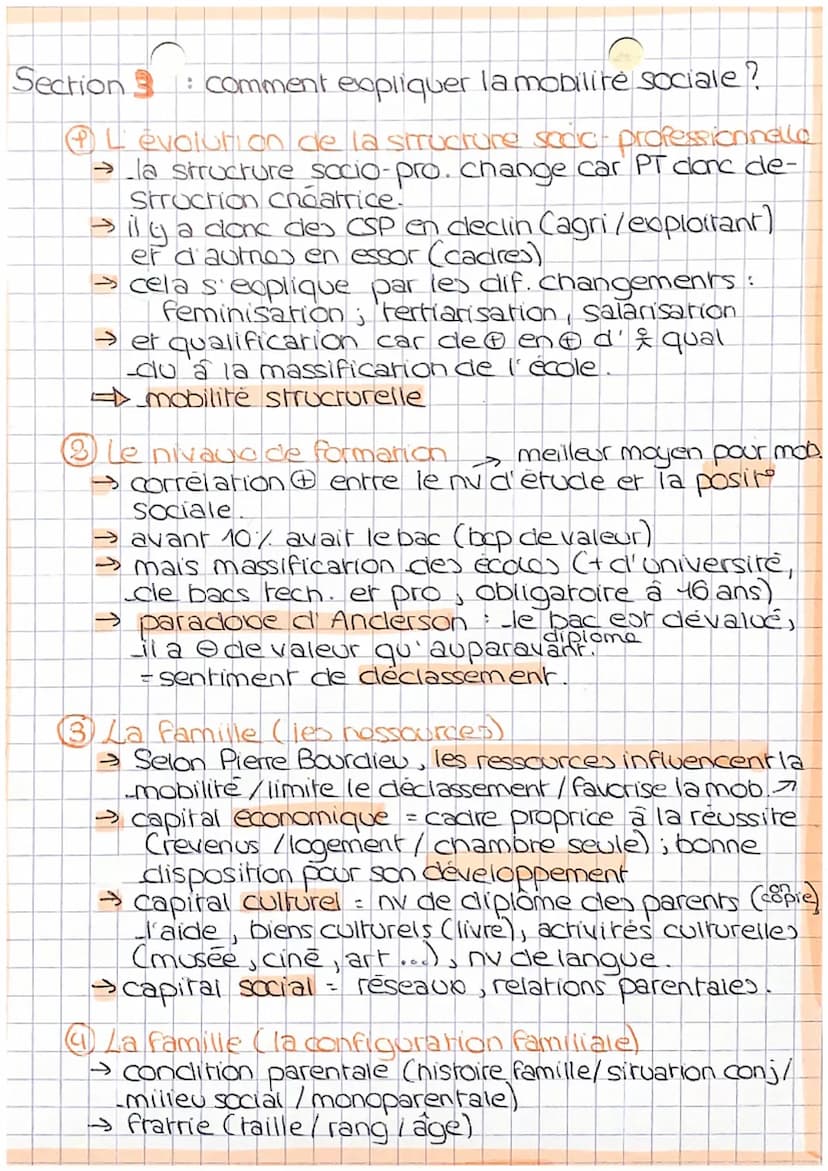 Section 3 : comment expliquer la mobilité sociale ?
① L'évolution de la structure socio-professionnelle
→ la structure socio-pro. change car PT donc de-
struction créatrice.
→ il y a donc des CSP en declin (agri/exploitant)
et d'autres en essor (cadres)
→ cela s'explique par les dif. changements :
feminisation ; tertiarisation, salarisation
→ et qualification car de ⊕ en ⊕ d' qual
du à la massification de l'école.
⇒ mobilité structurelle
② Le niveau de formation → meilleur moyen pour mob.
→ corrélation ⊕ entre le nv d'étude et la posit°
sociale.
→ avant 10% avait le bac (bcp de valeur)
→ mais massification des écoles (+ d'université,
de bacs tech. et pro, obligatoire à 16 ans)
→ paradoxe d'Anderson : le bac est dévalué,
il a ⊖ de valeur qu'auparavant. diplome
= sentiment de déclassement.
③ La famille (les ressources)
→ Selon Pierre Bourdieu, les ressources influencent la
mobilité / limite le déclassement / favorise la mob. ↗
→ capital économique = cadre proprice à la réussite
(revenus / logement / chambre seule) ; bonne
disposition pour son développement
→ capital culturel = nv de diplôme des parents (on copie)
l'aide, biens culturels (livre), activités culturelles
(musée, ciné, art ...), nv de langue.
→ capital social = réseaux, relations parentales.
④ La famille (la configuration familiale)
→ condition parentale (histoire famille/situation conj/
milieu social / monoparentale)
→ fratrie (taille / rang / âge)